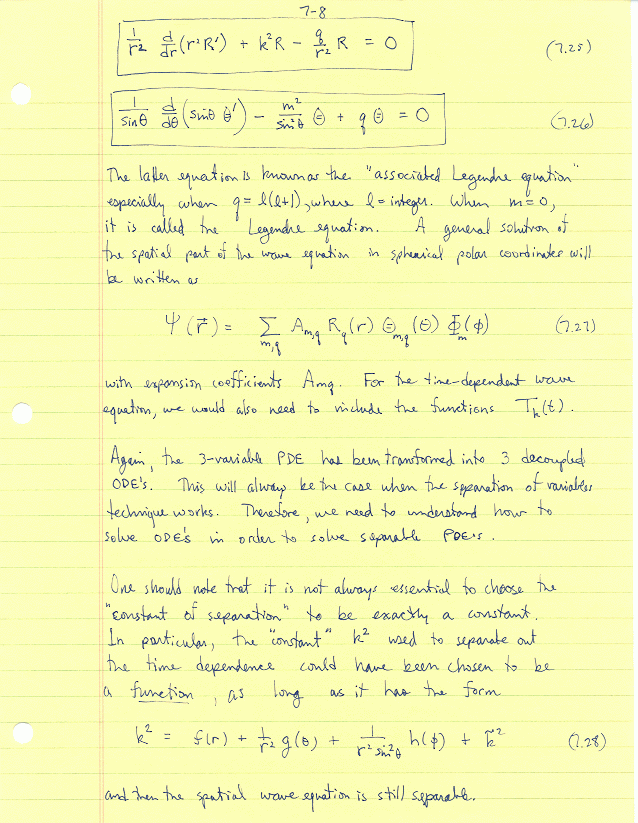 7-8
1/r² d/dr (r²R') + k²R - q/r² R = 0 (7.25)
1/sinθ d/dθ (sinθ Θ') - m²/sin²θ Θ + q Θ = 0 (7.26)
The latter equation is known as the "associated Legendre equation"
especially when q = l(l+1), where l = integer. When m = 0,
it is called the Legendre equation. A general solution of
the spatial part of the wave equation in spherical polar coordinates will
be written as
Ψ(r⃗) = Σ_{m,q} A_{m,q} R_q(r) Θ_{m,q}(θ) Φ_m(φ) (7.27)
with expansion coefficients A_{mq}. For the time-dependent wave
equation, we would also need to include the functions T_k(t).
Again, the 3-variable PDE has been transformed into 3 decoupled
ODE's. This will always be the case when the separation of variables
technique works. Therefore, we need to understand how to
solve ODE's in order to solve separable PDE's.
One should note that it is not always essential to choose the
"constant of separation" to be exactly a constant.
In particular, the "constant" k² used to separate out
the time dependence could have been chosen to be
a function, as long as it has the form
k² = f(r) + 1/r² g(θ) + 1/(r² sin²θ) h(φ) + k̃² (7.28)
and then the spatial wave equation is still separable.